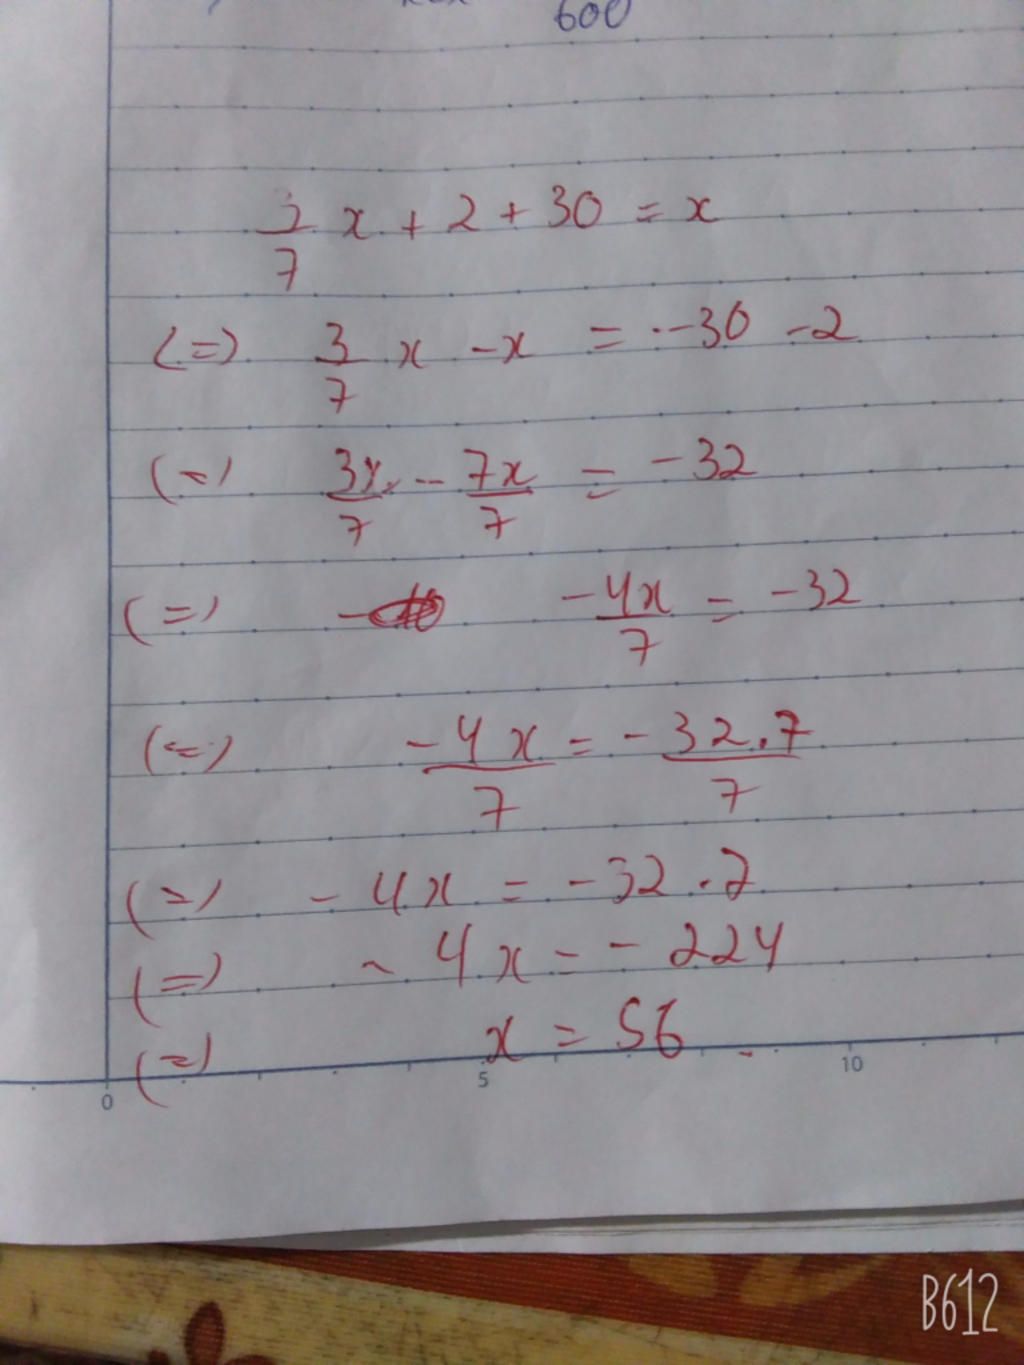 600
3/7 x + 2 + 30 = x
(=) 3/7 x - x = -30 - 2
(=) 3x/7 - 7x/7 = -32
(=) -4x/7 = -32
(=) -4x/7 = -32.7/7
(=) -4x = -32.7
(=) -4x = -224
(=) x = 56
0 5 10
B612